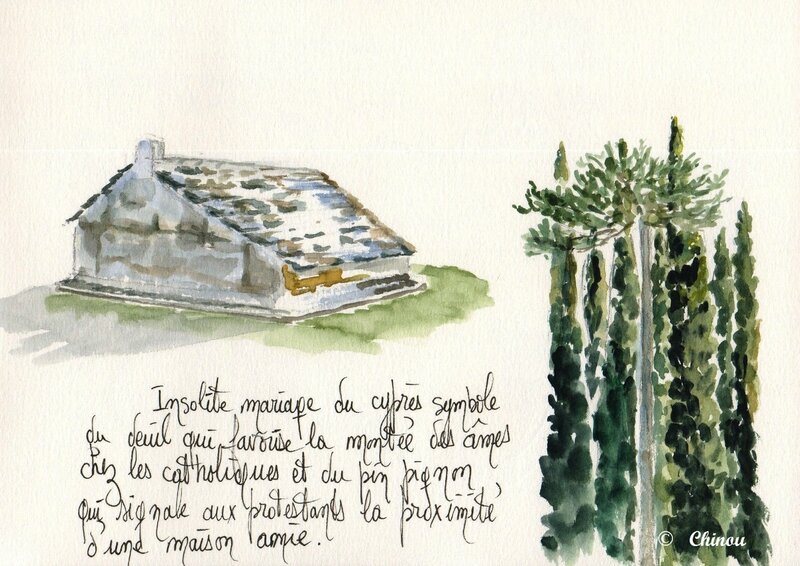 Insolite mariage du cyprès symbole
du deuil qui favorise la montée des âmes
chez les catholiques et du pin pignon
qui signale aux protestants la proximité
d'une maison amie.
© Chinou